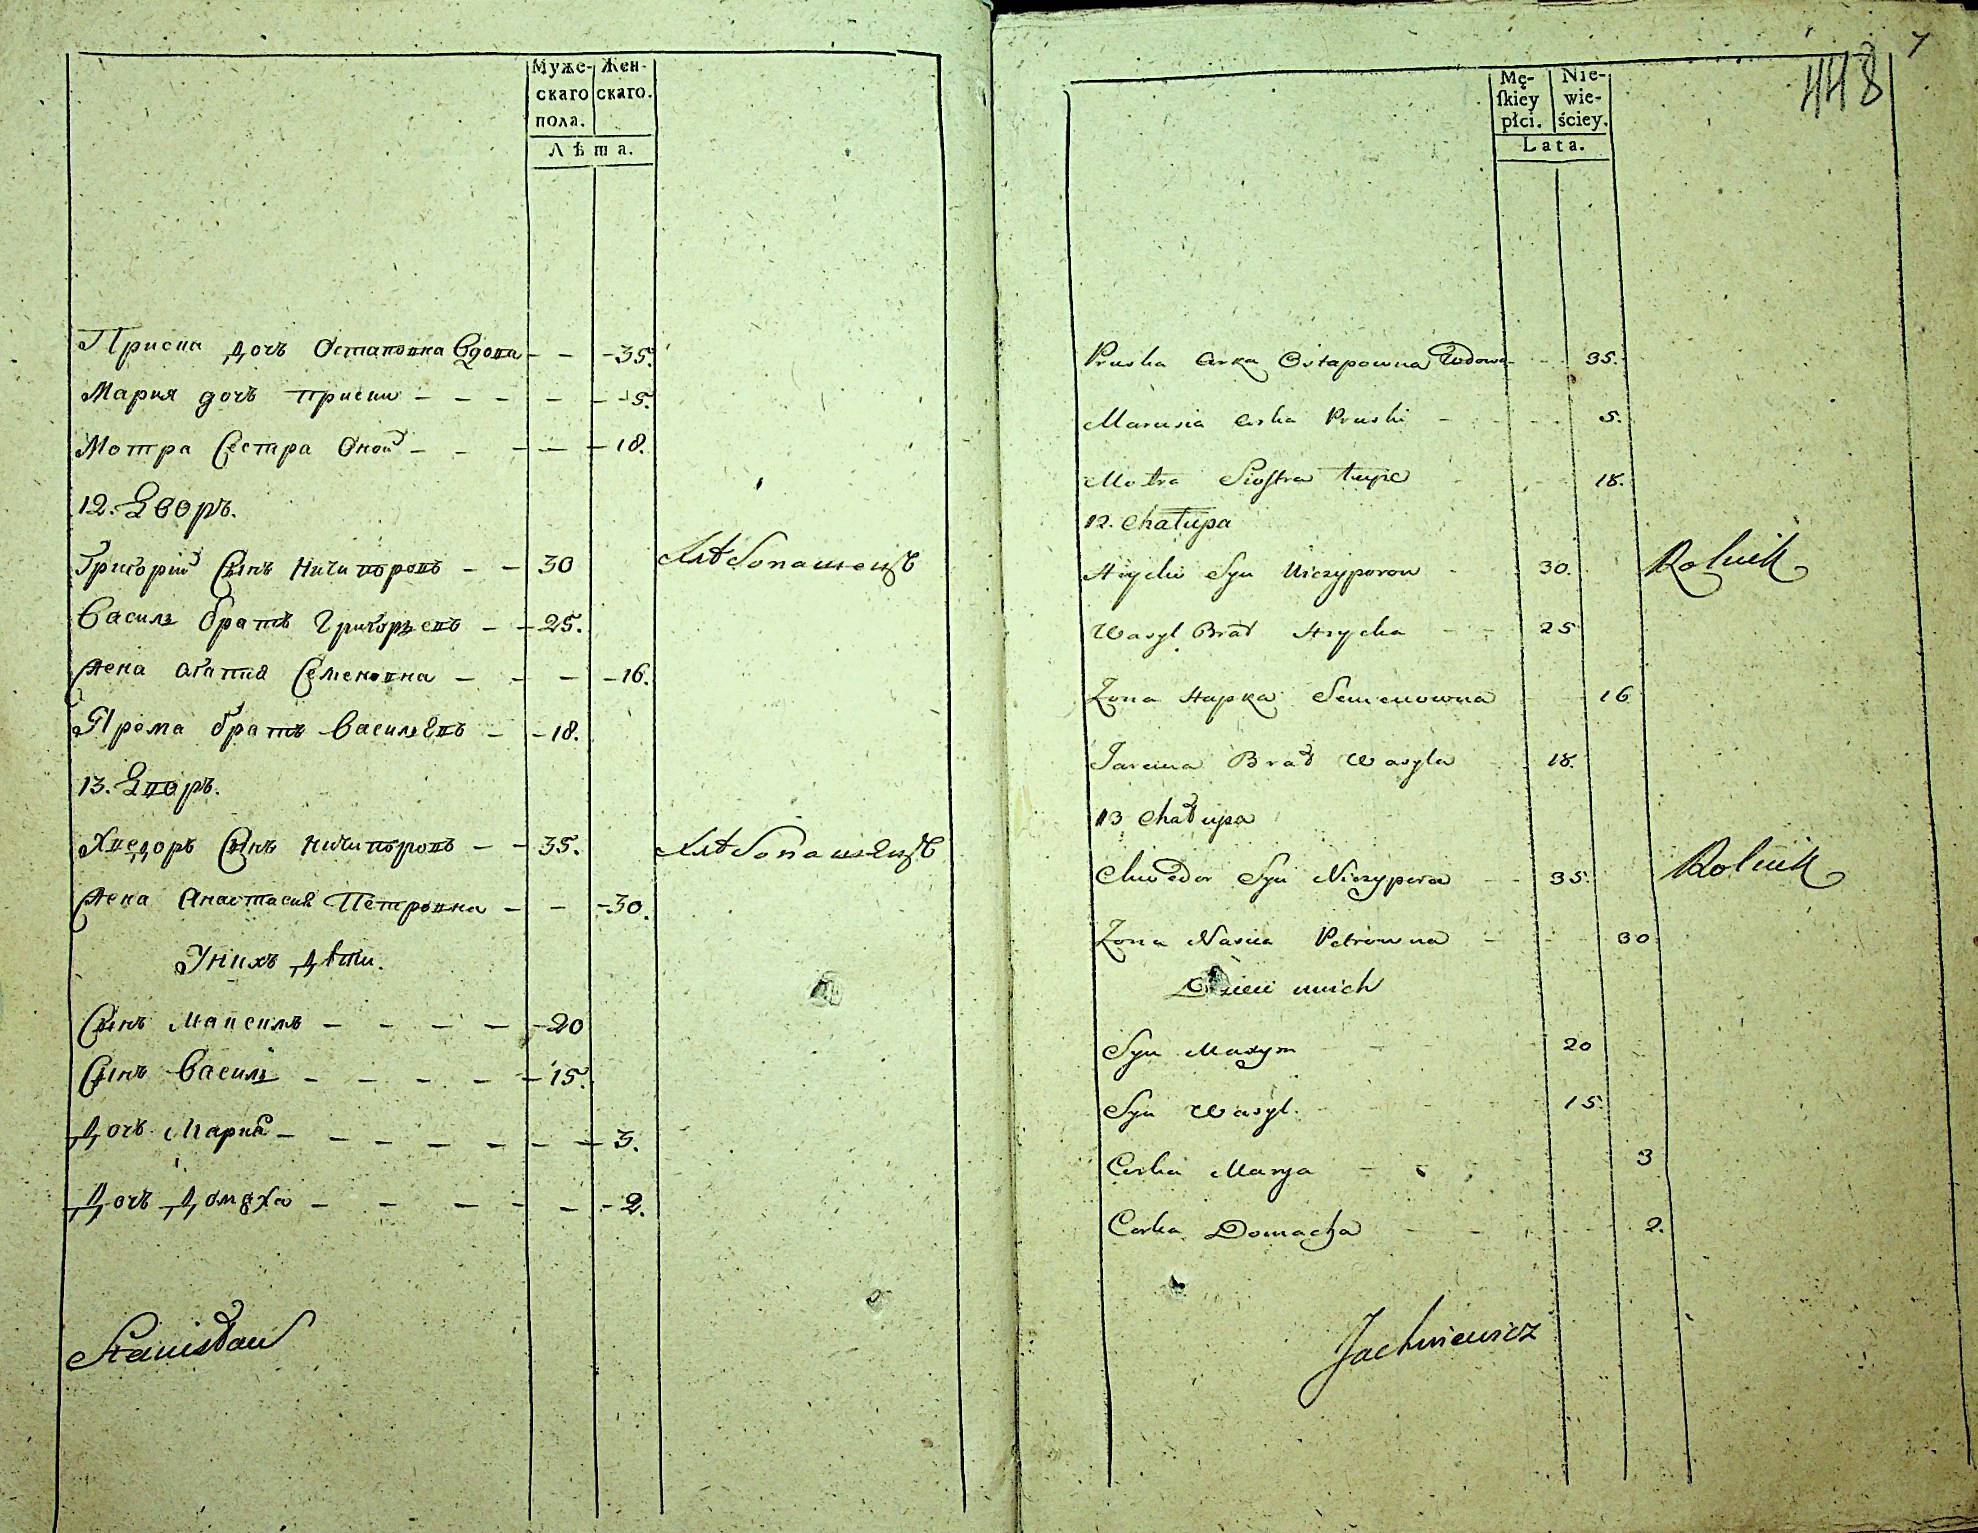 Муже-
скаго
пола.
Жен-
скаго.
Лѣта.
Приска дочъ Остаповна Вдова - - - 35.
Мария дочъ Приски - - - - - 5.
Мотра Сестра Оной - - - - - 18.
12. Дворъ.
Григорій Сынъ Ничипоровъ - - 30 Хлѣбопашецъ
Василь братъ Григорьевъ - - 25.
Жена Агапия Семеновна - - - - 16.
Ярема братъ Васильевъ - - 18.
13. Дворъ.
Хведоръ Сынъ Ничипоровъ - - 35. Хлѣбопашецъ
Жена Анастасия Петровна - - - 30.
Унихъ Дѣти.
Сынъ Максимъ - - - - - 20
Сынъ Василь - - - - - 15.
Дочъ Мария - - - - - - - 3.
Дочъ Домаха - - - - - - - 2.
Stanisław
7
448
Mę-
ſkiey
płci.
Nie-
wie-
ściey.
Lata.
Pruska Corka Ostapowna Wdowa - - 35.
Marusia Corka Pruski - - - - 5.
Motra Siostra teyże - - - 18.
12. Chałupa
Hryćko Syn Niczyporow - 30. Rolnik
Wasyl Brat Hrycka - - 25
Zona Hapka Semenowna - - 16
Jarema Brat Wasyla - 18.
13 Chałupa
Chwedor Syn Niczypora - - 35. Rolnik
Zona Nasca Petrowna - - - 30.
Dzieci unich
Syn Maxym - - 20
Syn Wasyl. - - - 15.
Corka Marya - - - 3
Corka Domacha - - - - 2.
Jachniewicz